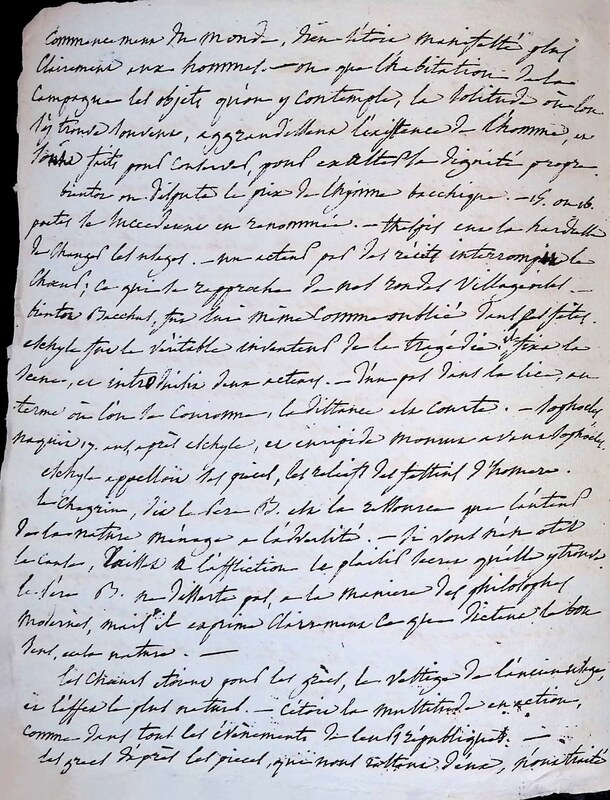 commencement du monde, Dieu s'étoit manifesté plus
clairement aux hommes. – ou que l'habitation de la
Campagne les objets qu'on y contemple, la solitude où l'on
s'y trouve souvent, aggrandissent l'existence de l'homme, et
sont faits pour conserver, pour exalter sa dignité propre.
bientot on disputa le prix de l'hymne bacchique. – 15. ou 16.
poetes se succederent en renommée. – thespis eut la hardiesse
de changer les usages. – un acteur par des récits interrompit le
Chœur; ce qui se rapproche de nos rondes villageoises –
bientot Bacchus, fut lui même comme oublié dans ses fêtes.
eschyle fut le véritable inventeur de la tragédie. il fixa la
scene, et introduisit deux acteurs. – d'un pas dans la lice, au
terme où l'on se couronne, la distance est courte. – sophocle,
naquit 17. ans, après eschyle, et euripide mourut avant sophocle.
eschyle appelloit ses pieces, les reliefs des festins d'homere.
le chagrin, dit le Pere B. est la ressource que l'auteur
de la nature ménage à l'adversité. – si vous n'en otez
la cause, laissez à l'affliction le plaisir secret qu'elle y trouve.
le Pere B. ne disserte pas, à la maniere des philosophes
modernes, mais il exprime clairement ce que dictent le bon
sens, et la nature. –
les chœurs etoient pour les grecs, le vestige de l'ancien usage,
et l'effet le plus naturel. – c'etoit la multitude en action,
comme dans tous les évènements de leurs republiques. –
les grecs d'après les pieces, qui nous restent d'eux, n'ont traité